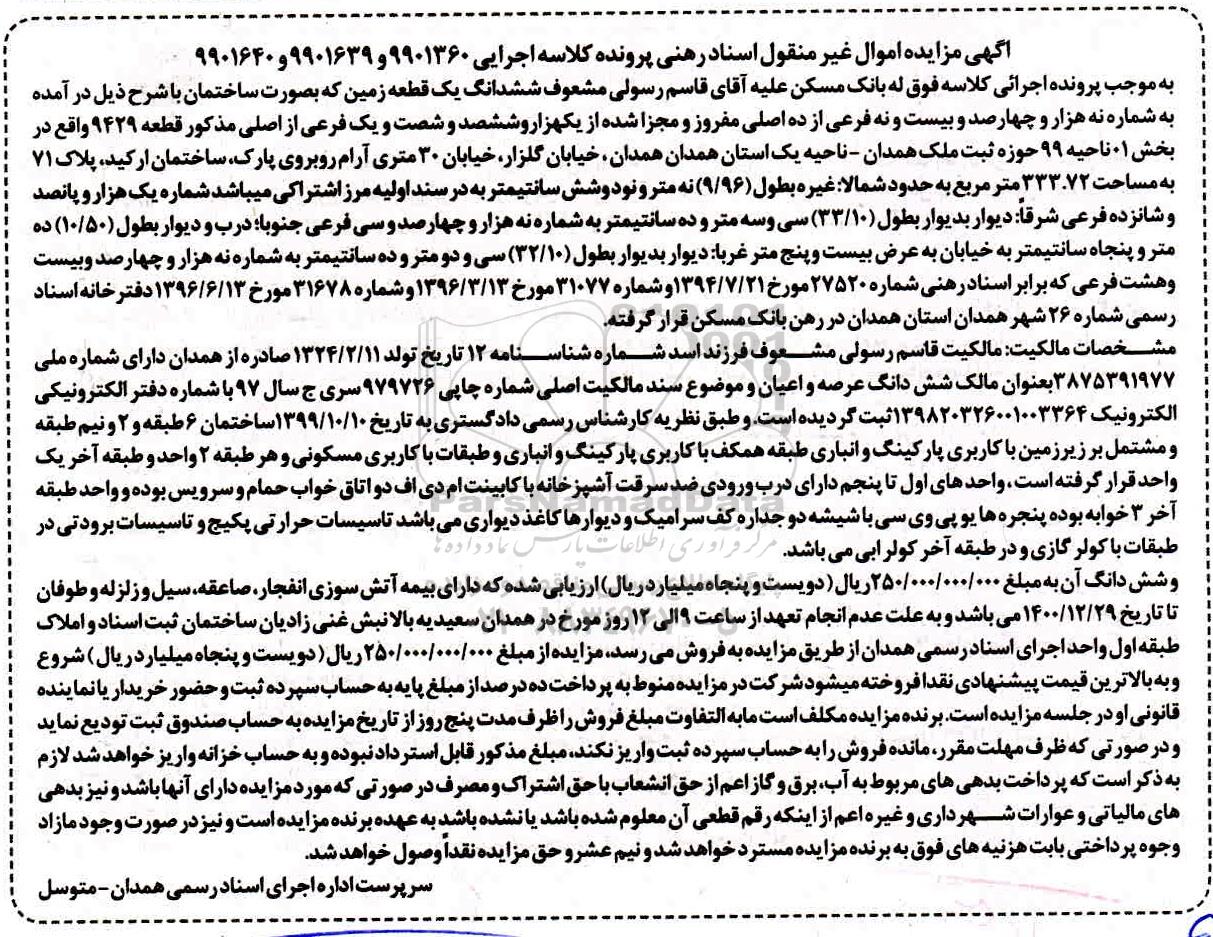 آگهی مزایده اموال غیر منقول اسناد رهنی پرونده کلاسه اجرایی ۹۹۰۱۳۶۰ و ۹۹۰۱۶۳۹ و ۹۹۰۱۶۴۰
به موجب پرونده اجرائی کلاسه فوق له بانک مسکن علیه آقای قاسم رسولی مشعوف ششدانگ یک قطعه زمین که بصورت ساختمان با شرح ذیل در آمده
به شماره نه هزار و چهارصد و بیست و نه فرعی از ده اصلی مفروز و مجزا شده از یکهزار و ششصد و شصت و یک فرعی از اصلی مذکور قطعه ۹۴۲۹ واقع در
بخش ۰۱ ناحیه ۹۹ حوزه ثبت ملک همدان - ناحیه یک استان همدان همدان ، خیابان گلزار، خیابان ۳۰ متری آرام روبروی پارک، ساختمان ارکید، پلاک ۷۱
به مساحت ۳۳۳.۷۲ متر مربع به حدود شمالا: غیره بطول (۹/۹۶) نه متر و نود و شش سانتیمتر به در سند اولیه مرز اشتراکی میباشد شماره یک هزار و پانصد
و شانزده فرعی شرقاً: دیوار بدیوار بطول (۳۳/۱۰) سی و سه متر و ده سانتیمتر به شماره نه هزار و چهارصد و سی فرعی جنوبا؛ درب و دیوار بطول (۱۰/۵۰) ده
متر و پنجاه سانتیمتر به خیابان به عرض بیست و پنج متر غربا: دیوار بدیوار بطول (۳۲/۱۰) سی و دو متر و ده سانتیمتر به شماره نه هزار و چهارصد وبیست
وهشت فرعی که برابر اسناد رهنی شماره ۲۷۵۲۰ مورخ ۱۳۹۴/۷/۲۱ و شماره ۳۱۰۷۷ مورخ ۱۳۹۶/۳/۱۳ و شماره ۳۱۶۷۸ مورخ ۱۳۹۶/۶/۱۳ دفترخانه اسناد
رسمی شماره ۲۶ شهر همدان استان همدان در رهن بانک مسکن قرار گرفته.
مشخصات مالکیت: مالکیت قاسم رسولی مشعوف فرزند اسد شماره شناسنامه ۱۲ تاریخ تولد ۱۳۲۴/۲/۱۱ صادره از همدان دارای شماره ملی
۳۸۷۵۳۹۱۹۷۷ بعنوان مالک شش دانگ عرصه و اعیان و موضوع سند مالکیت اصلی شماره چاپی ۹۷۹۷۲۶ سری ج سال ۹۷ با شماره دفتر الکترونیکی
الکترونیک ۱۳۹۸۲۰۳۲۶۰۰۱۰۰۳۳۶۴ ثبت گردیده است. و طبق نظریه کارشناس رسمی دادگستری به تاریخ ۱۳۹۹/۱۰/۱۰ ساختمان ۶ طبقه و ۲ و نیم طبقه
و مشتمل بر زیرزمین با کاربری پارکینگ و انباری طبقه همکف با کاربری پارکینگ و انباری و طبقات با کاربری مسکونی و هر طبقه ۲ واحد و طبقه آخر یک
واحد قرار گرفته است ، واحد های اول تا پنجم دارای درب ورودی ضد سرقت آشپزخانه با کابینت ام دی اف دو اتاق خواب حمام و سرویس بوده و واحد طبقه
آخر ۳ خوابه بوده پنجره ها یو پی وی سی با شیشه دو جداره کف سرامیک و دیوارها کاغذ دیواری می باشد تاسیسات حرارتی پکیج و تاسیسات برودتی در
طبقات با کولر گازی و در طبقه آخر کولر ابی می باشد.
ParsNamadData
و شش دانگ آن به مبلغ ۲۵۰/۰۰۰/۰۰۰/۰۰۰ ریال (دویست و پنجاه میلیارد ریال) ارزیابی شده که دارای بیمه آتش سوزی انفجار، صاعقه، سیل و زلزله و طوفان
تا تاریخ ۱۴۰۰/۱۲/۲۹ می باشد و به علت عدم انجام تعهد از ساعت ۹ الی ۱۲ روز مورخ در همدان سعیدیه بالا نبش غنی زادیان ساختمان ثبت اسناد و املاک
طبقه اول واحد اجرای اسناد رسمی همدان از طریق مزایده به فروش می رسد، مزایده از مبلغ ۲۵۰/۰۰۰/۰۰۰/۰۰۰ ریال (دویست و پنجاه میلیارد ریال) شروع
و به بالاترین قیمت پیشنهادی نقدا فروخته میشود شرکت در مزایده منوط به پرداخت ده درصد از مبلغ پایه به حساب سپرده ثبت و حضور خریدار یا نماینده
قانونی او در جلسه مزایده است. برنده مزایده مکلف است مابه التفاوت مبلغ فروش را ظرف مدت پنج روز از تاریخ مزایده به حساب صندوق ثبت تودیع نماید
و در صورتی که ظرف مهلت مقرر، مانده فروش را به حساب سپرده ثبت واریز نکند، مبلغ مذکور قابل استرداد نبوده و به حساب خزانه واریز خواهد شد لازم
به ذکر است که پرداخت بدهی های مربوط به آب، برق و گاز اعم از حق انشعاب با حق اشتراک و مصرف در صورتی که مورد مزایده دارای آنها باشد و نیز بدهی
های مالیاتی و عوارات شهرداری و غیره اعم از اینکه رقم قطعی آن معلوم شده باشد یا نشده باشد به عهده برنده مزایده است و نیز در صورت وجود مازاد
وجوه پرداختی بابت هزنیه های فوق به برنده مزایده مسترد خواهد شد و نیم عشر و حق مزایده نقداً وصول خواهد شد.
سرپرست اداره اجرای اسناد رسمی همدان - متوسل